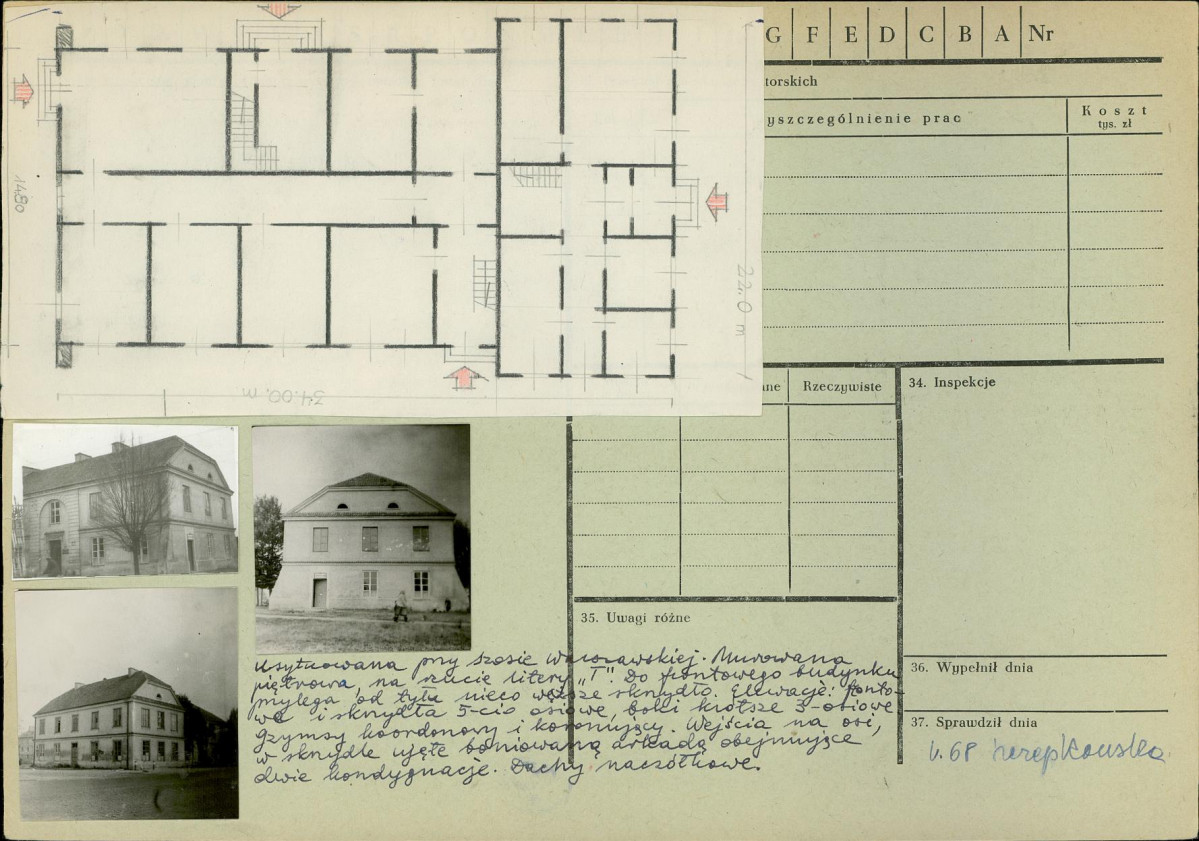 G F E D C B A Nr
torskich
yszczególnienie prac
Koszt
tys. zł
14,80
22,0 m
34.00. m
ne
Rzeczywiste
34. Inspekcje
35. Uwagi różne
36. Wypełnił dnia
37. Sprawdził dnia
V. 68
Usytuowana przy szosie warszawskiej. Murowana
piętrowa, na rzucie litery „T". Do frontowego budynku
przylega od tyłu nieco węższe skrzydło. Elewacje: fronto-
wa i skrzydła 5-cio osiowe, boki krótsze 3-osiowe
gzymsy kordonowy i koronujący. Wejścia na osi,
w skrzydle ujęte boniowaną arkadą obejmujące
dwie kondygnacje. Dachy naczółkowe.